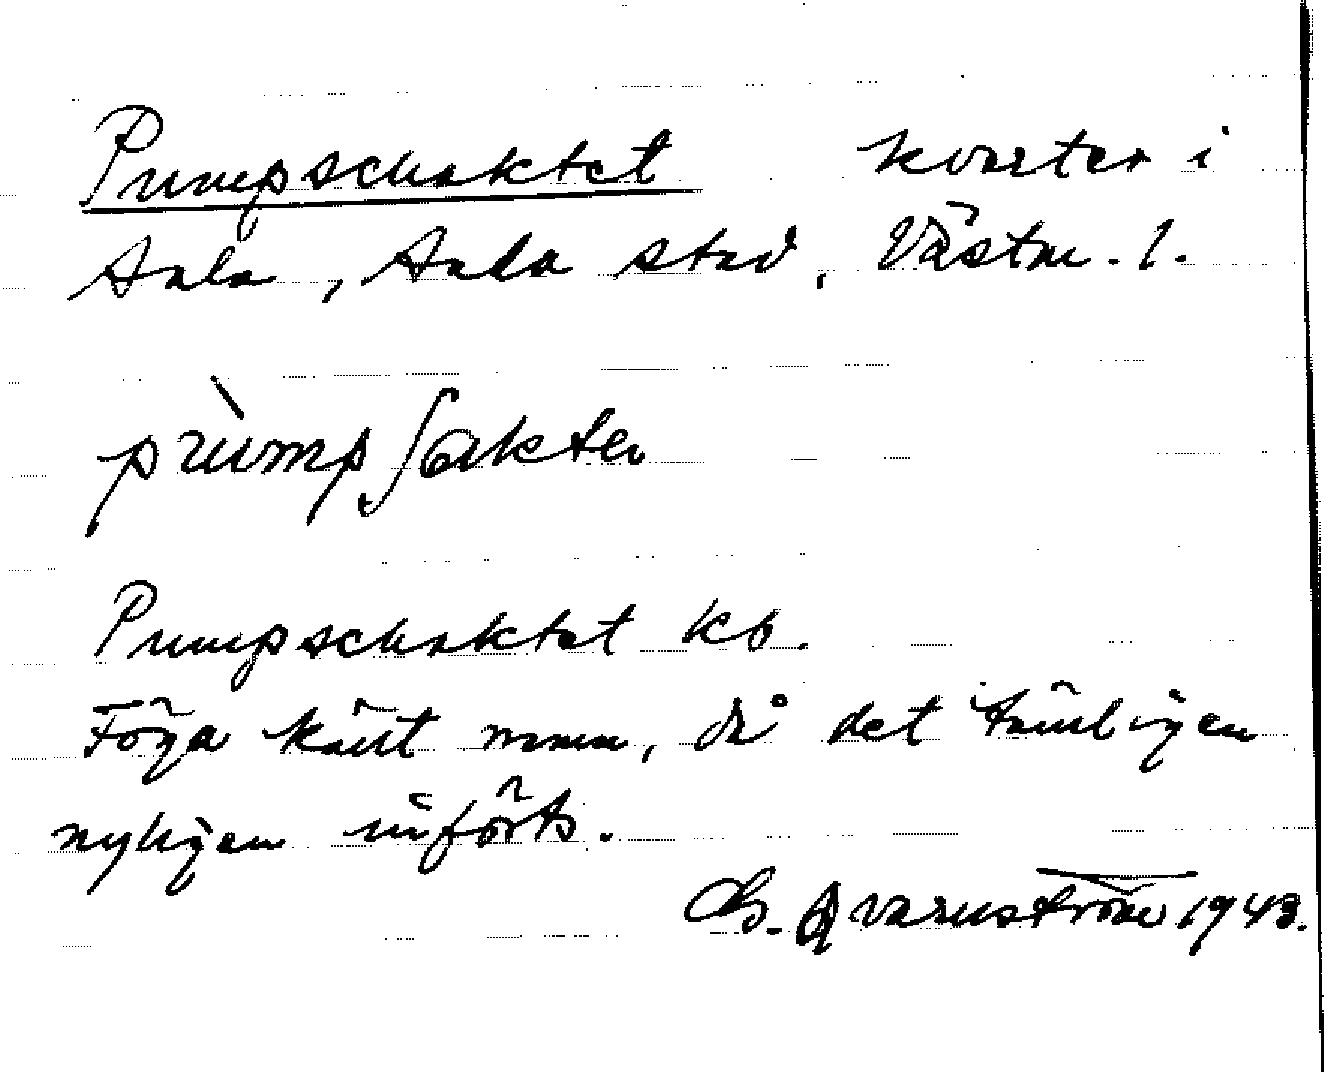 Pumpschaktet kvarter i
Sala, Sala stad, Västm. l.
pùmpʃakte
Pumpschaktet kb.
Föga känt namn, då det tämligen
nyligen införts.
G. Qvarnström 1943.